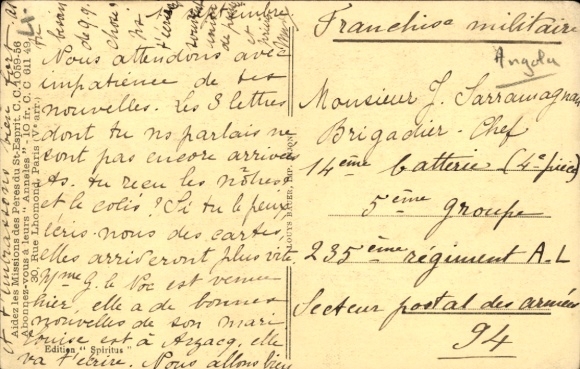 Franchise militaire
Angola
Monsieur J. Sarramagnan
Brigadier-Chef
14ème batterie (4e pièce)
5ème groupe
235ème régiment A.L
Secteur postal des armées
94
Nous attendons avec
impatience de tes
nouvelles. Les 3 lettres
dont tu ns parlais ne
sont pas encore arrivées
As-tu reçu les nôtres
et le colis? Si tu le peux
écris-nous des cartes,
elles arriveront plus vite.
Mme G. le Poc est venue
hier, elle a de bonnes
nouvelles de son mari
Louise est à Arzacq, elle
va t'écrire. Nous allons bien
Aidez les Missions des Pères du St-Esprit. C. C. 1059-56
Abonnez-vous à leurs "Annales" 10 fr. C. C. 611 49
30, Rue Lhomond, Paris (Ve arr.)
Edition "Spiritus"
LOUYS BAUER, IMP. DIJON